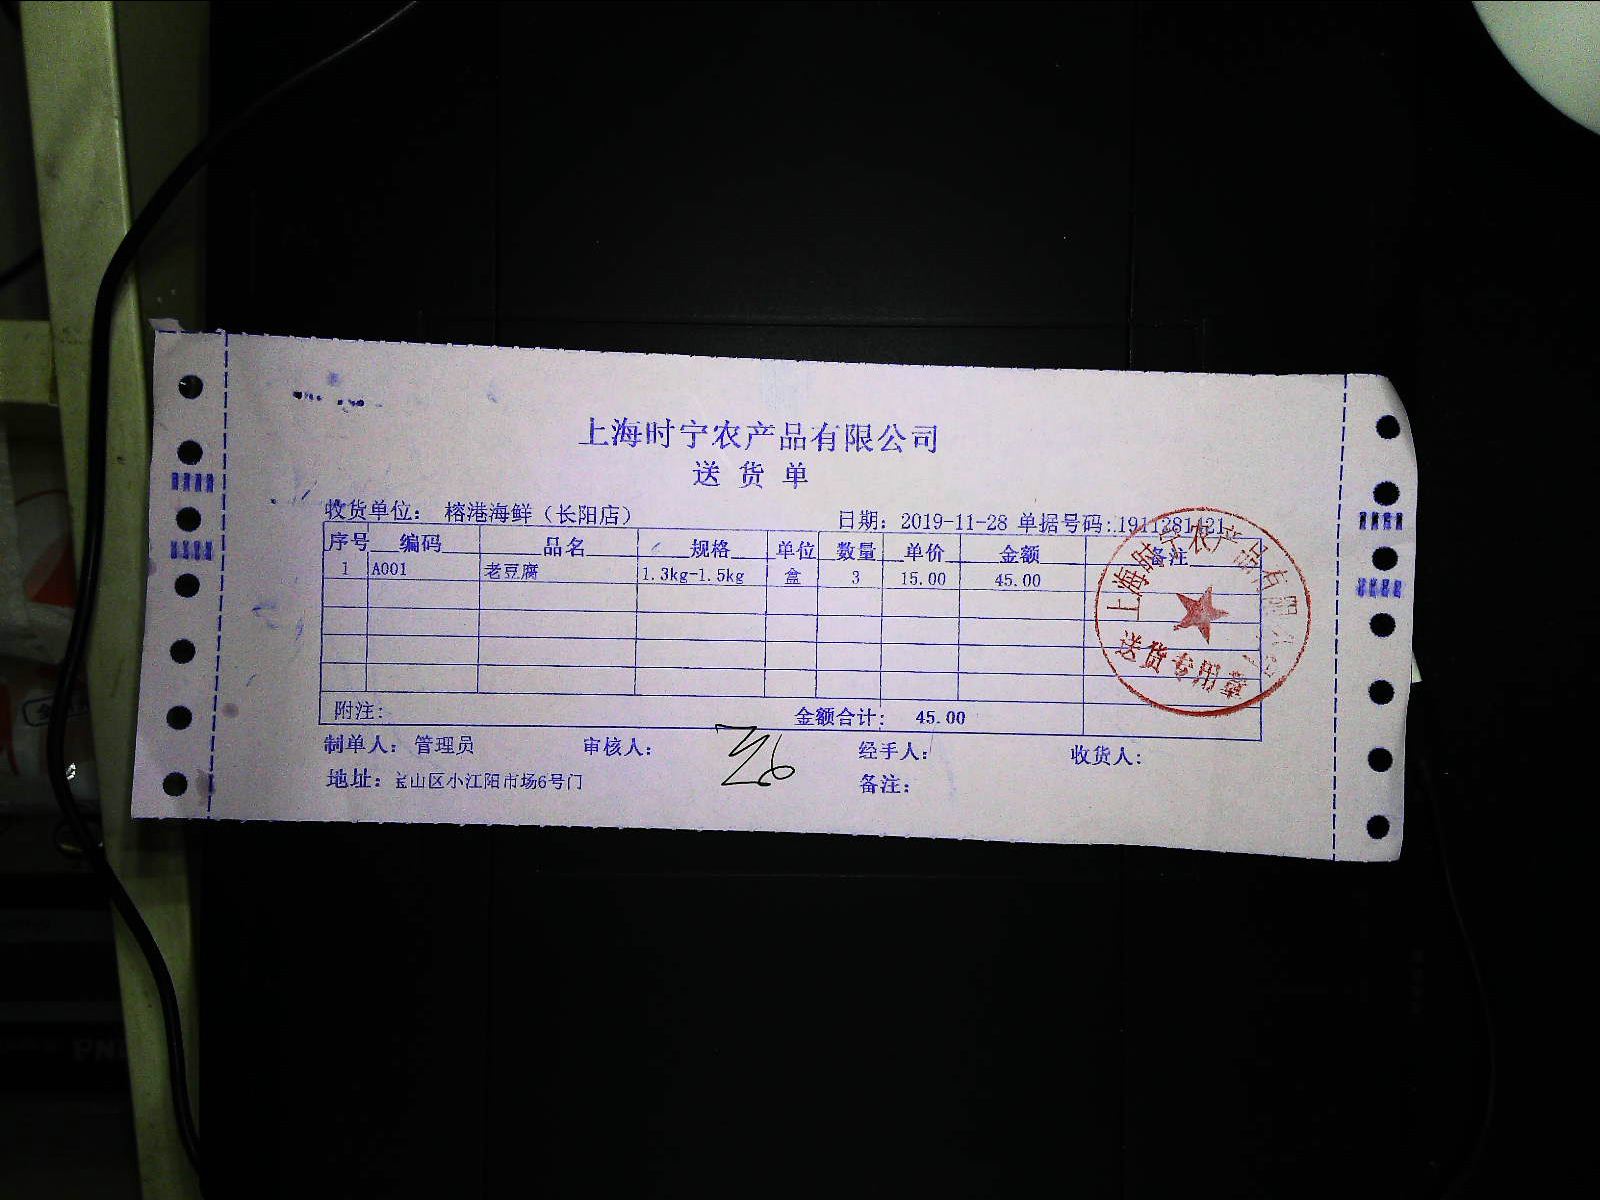 上海时宁农产品有限公司
送货单
收货单位: 榕港海鲜(长阳店) 日期: 2019-11-28 单据号码: 1911281421
序号 编码 品名 规格 单位 数量 单价 金额 备注
1 A001 老豆腐 1.3kg-1.5kg 盒 3 15.00 45.00
附注: 金额合计: 45.00
制单人: 管理员 审核人: 经手人: 收货人:
地址: 宝山区小江阳市场6号门 备注:
上海时宁农产品有限公司
送货专用章